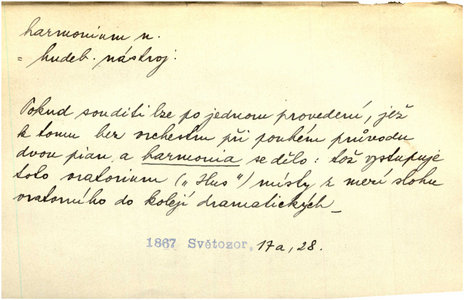 harmonium n.
= hudeb. nástroj.
Pokud souditi lze po jednom provedení, jež
k tomu bez orchestru při pouhém průvodu
dvou pian a harmonia se dělo: tož vystupuje
toto oratorium („Hus") místy z mezí slohu
oratorního do kolejí dramatických_
1867 Světozor, 17a, 28.